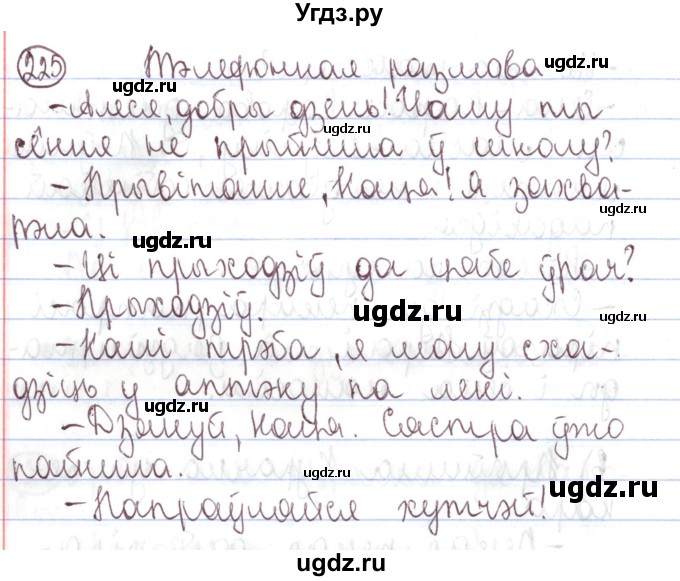 Угдз.ру
225 Тэлефонная размова
– Алеся, добры дзень! Чаму ты
сёння не прыйшла ў школу?
– Прывітанне, Каця! Я захва-
рэла.
– Ці прыходзіў да цябе ўрач?
– Прыходзіў.
– Калі трэба, я магу сха-
дзіць у аптэку па лекі.
– Дзякуй, Каця. Сястра ўжо
пабегла.
– Папраўляйся хутчэй!
ugdz.ru
ugdz.ru
ugdz.ru
ugdz.ru
ugdz.ru
ugdz.ru
ugdz.ru
ugdz.ru
ugdz.ru
ugdz.ru
ugdz.ru
ugdz.ru